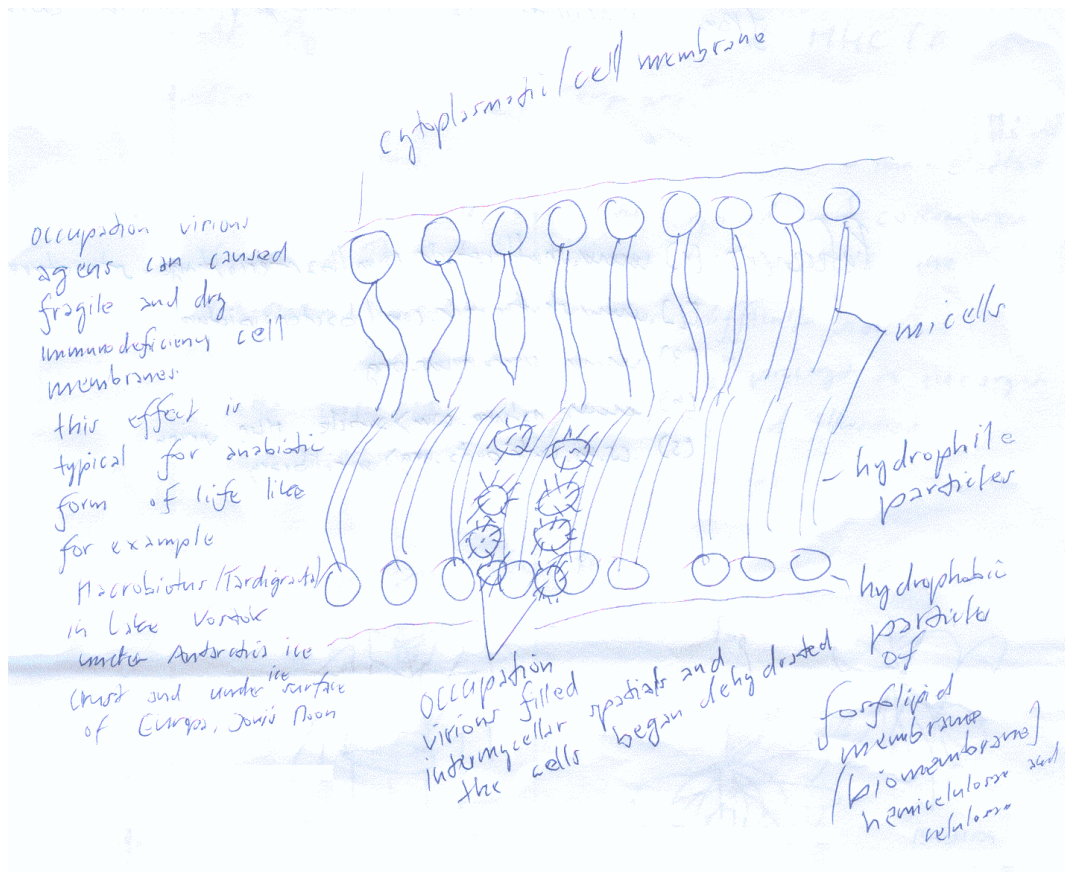 cytoplasmatic/cell membrane
Occupation virions
agens can caused
fragile and dry
Immunodeficiency cell
membranes.
this effect is
typical for anabiotic
form of life like
for example
Macrobiotus/Tardigrata/
in Lake Vostok
under Antarctis ice
crust and under ice surface
of Europa, Jovis Moon
micells
hydrophile
particles
hydrophobic
particles
of
fosfolipid
membrane
[biomembrane]
hemicelulosae and
celulosae
Occupation
virions filled
intermycellar spatials and
the cells began dehydrated